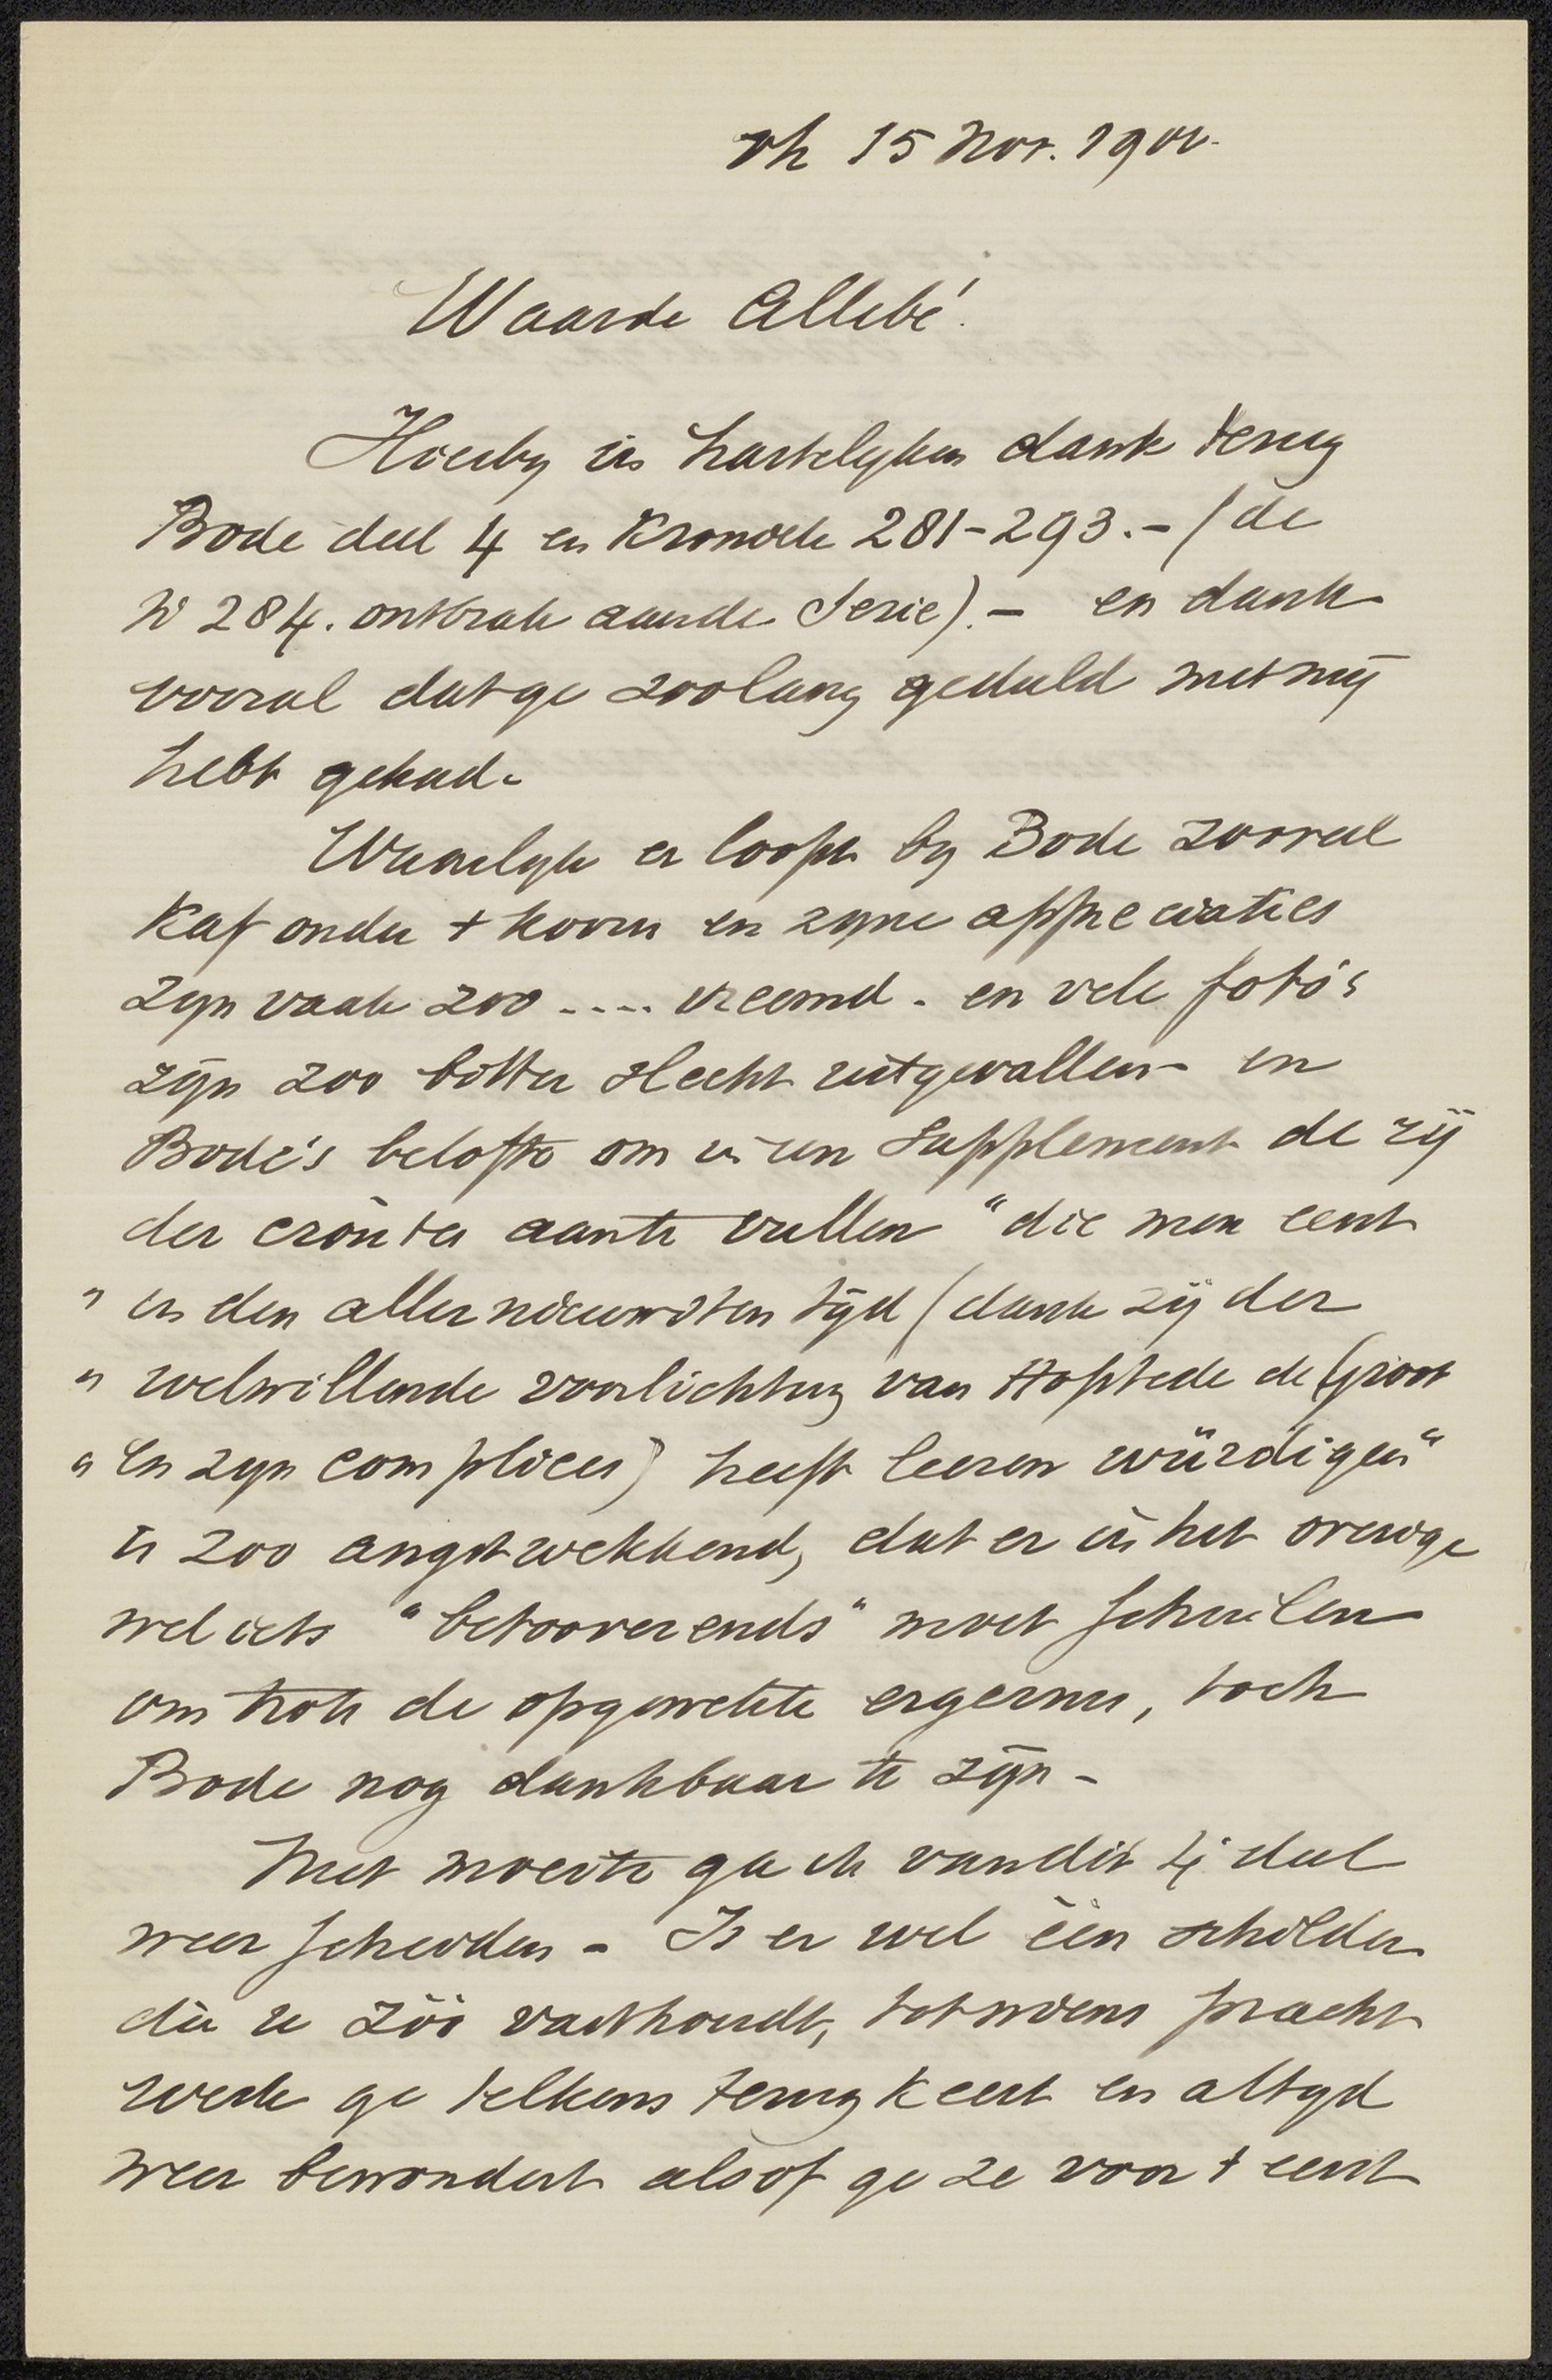 15 Nov. 1900.
Waarde Allebé!
Hierby in hartelyken dank terug
Bode deel 4 en Kroniek 281-293.- (de
No 284. ontbrak aan de Serie).- en dank
vooral dat ge zoolang geduld met mij
hebt gehad.
Waarlyk er loopt by Bode zooveel
Kaf onder t koorn en zyne appreciaties
zyn vaak zoo .... vreemd. en vele foto's
zijn zoo bitter slecht uitgevallen en
Bode's belofte om in een Supplement de rij
der eronter aan te vullen "die men eerst
" in den allernieuwsten tijd (dank zij der
" welwillende voorlichting van Hofstede de Groot
" en zyn complices) heeft leeren würdigen"
is zoo angstwekkend, dat er in het overige
wel iets "betooverends" moet schuilen
om trots de opgewekte ergernis, toch
Bode nog dankbaar te zijn -
Met moeite ga ik van dit 4e deel
weer scheiden - Is er wel één schilder
die u zóó vasthoudt, tot wiens pracht
werk ge telkens terug keert en altyd
weer bewondert alsof ge ze voor t eerst